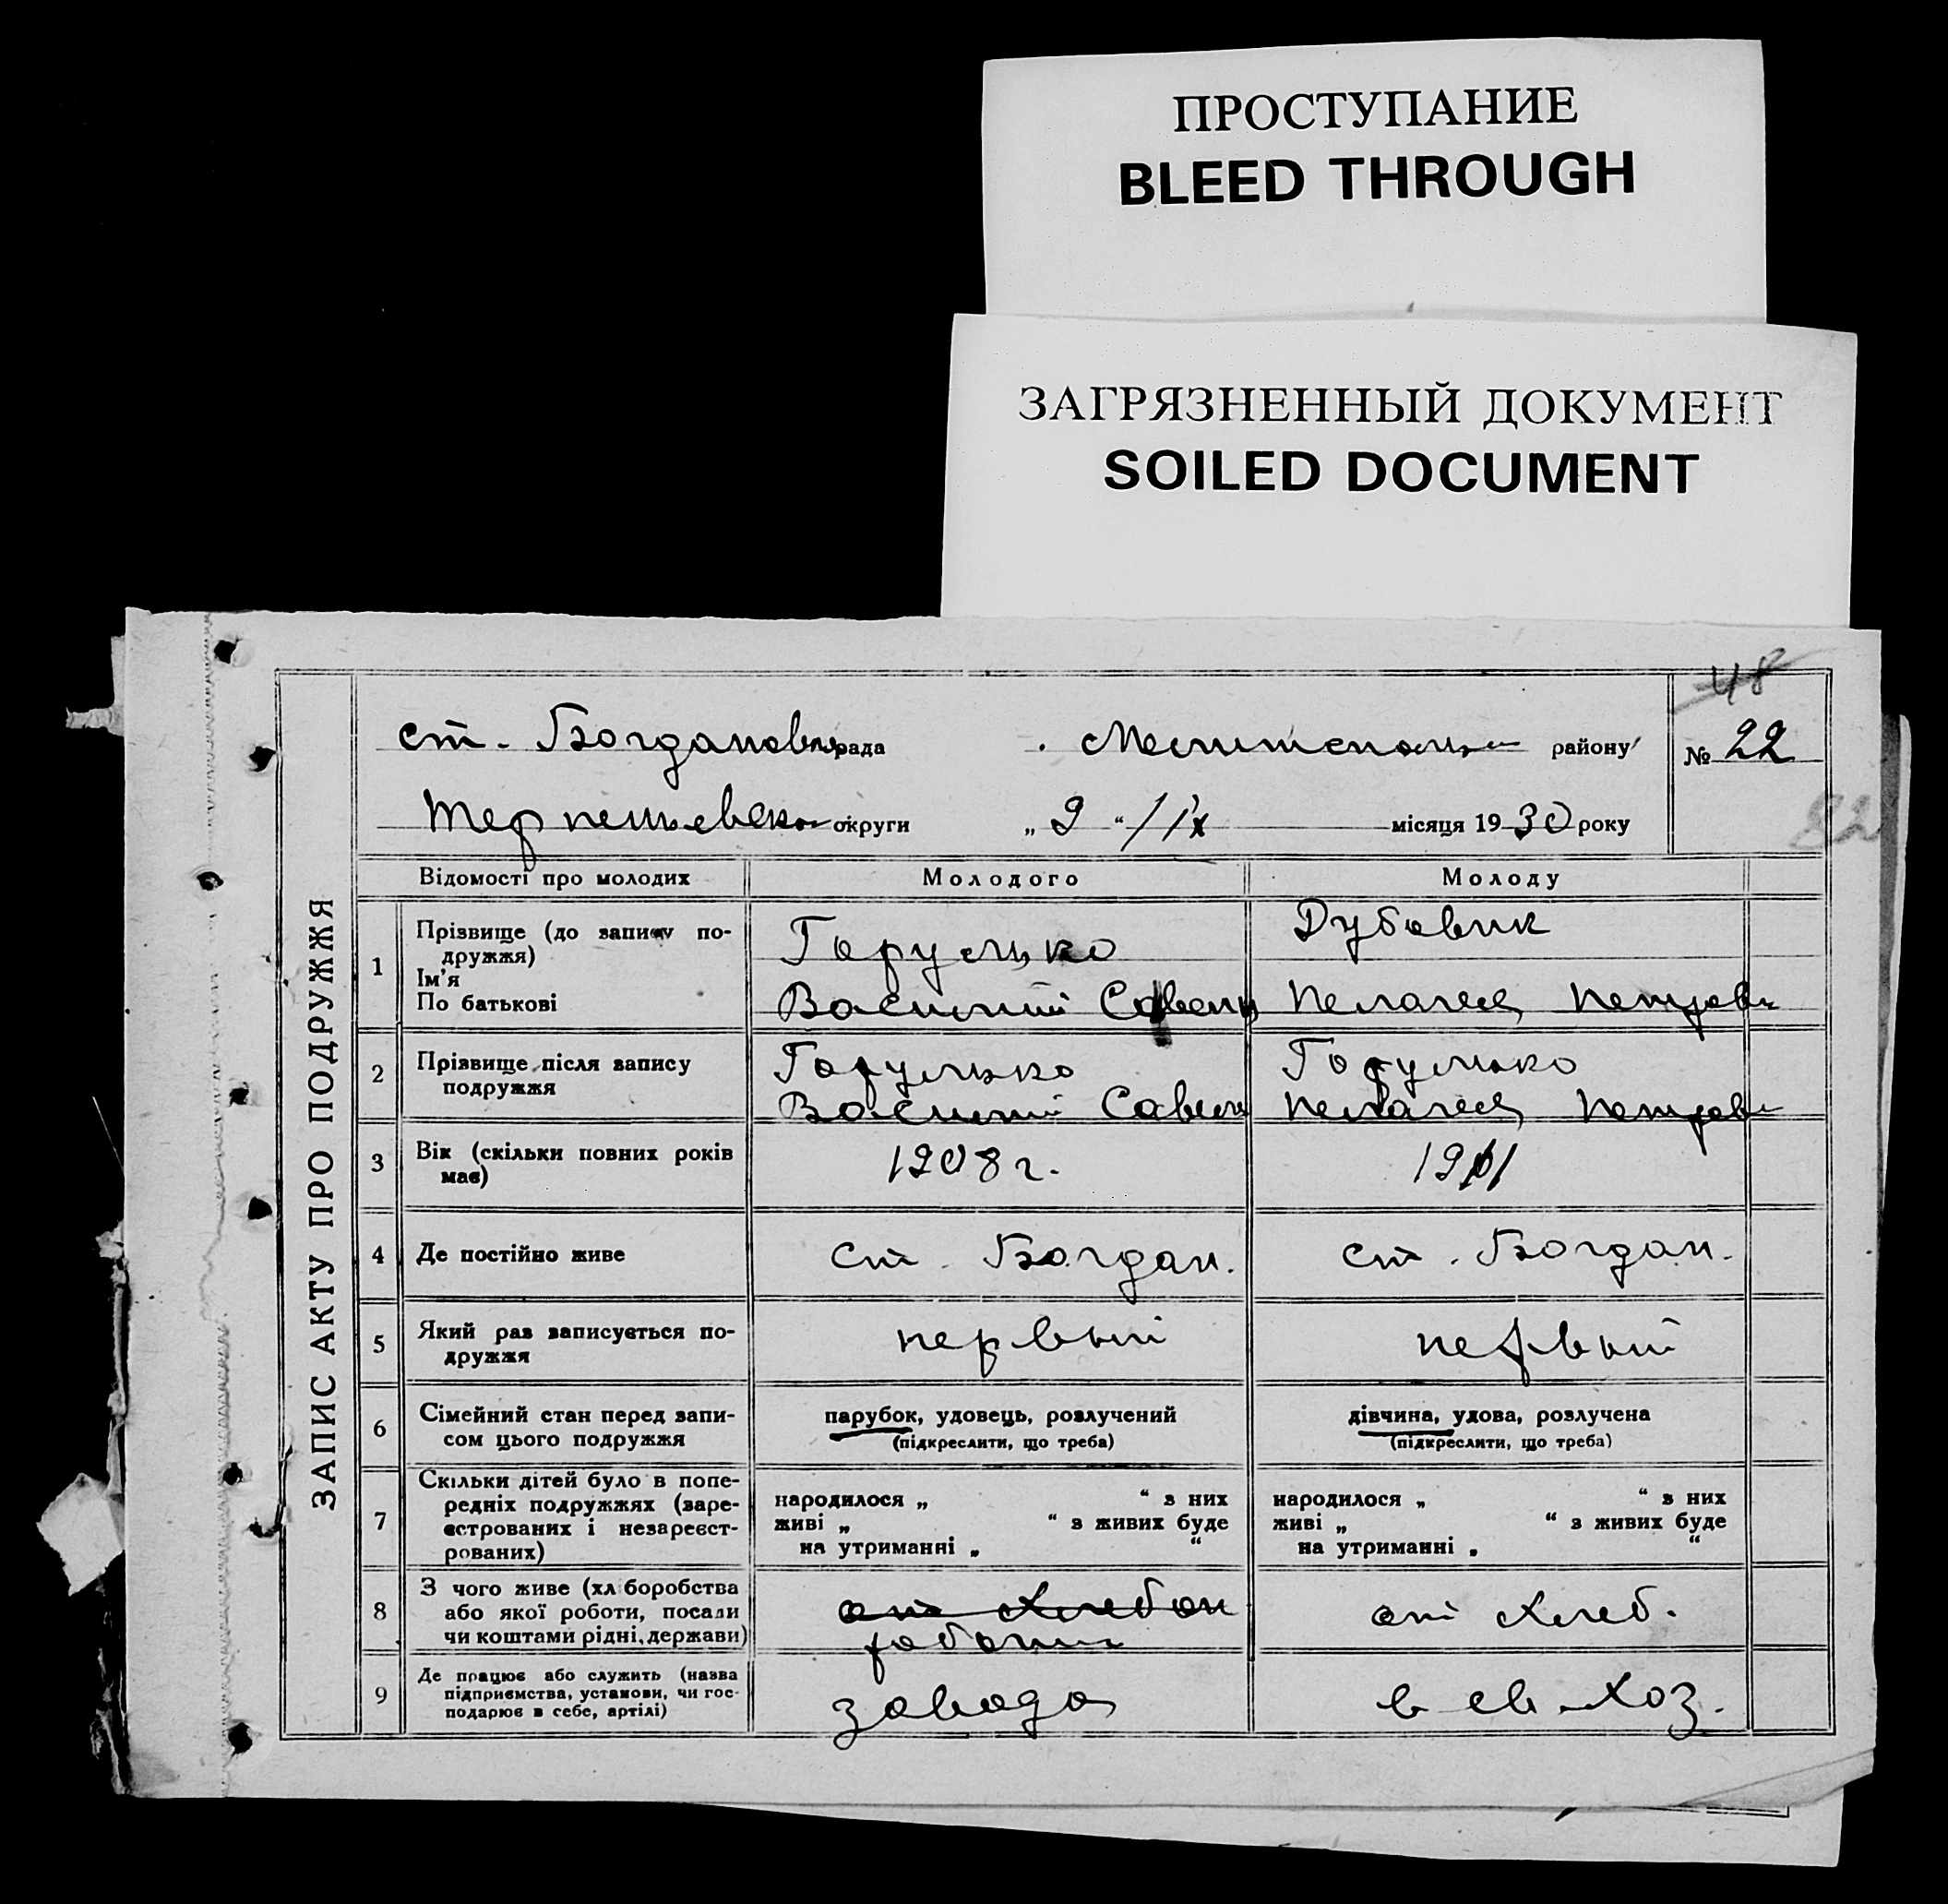 ПРОСТУПАНИЕ
BLEED THROUGH
ЗАГРЯЗНЕННЫЙ ДОКУМЕНТ
SOILED DOCUMENT
48
ст. Богдановка рада района № 22
округи „ 9 “ / IX місяця 1930 року
82
ЗАПИС АКТУ ПРО ПОДРУЖЖЯ
Відомості про молодих Молодого Молоду
1 Прізвище (до запису по-
дружжя)
Ім’я
По батькові
Горулько Дубовик
Василий Савели Пелагея Петров
2 Прізвище після запису
подружжя
Горулько Горулько
Василий Савели Пелагея Петров
3 Вік (скільки повних років
має)
1908 г. 1911
4 Де постійно живе ст. Богдан. ст. Богдан.
5 Який раз записується по-
дружжя
первый первый
6 Сімейний стан перед запи-
сом цього подружжя
парубок, удовець, розлучений
(підкреслити, що треба)
дівчина, удова, розлучена
(підкреслити, що треба)
7 Скільки дітей було в попе-
редніх подружжях (заре-
єстрованих і незареєст-
рованих)
народилося „ “ з них
живі „ “ з живих буде
на утриманні „ “
народилося „ “ з них
живі „ “ з живих буде
на утриманні „ “
8 З чого живе (хліборобства
або якої роботи, посади
чи коштами рідні, держави)
от Хлебоп
работы
от Хлеб.
9 Де працює або служить (назва
підприємства, установи, чи гос-
подарює в себе, артілі)
завода в св. хоз.